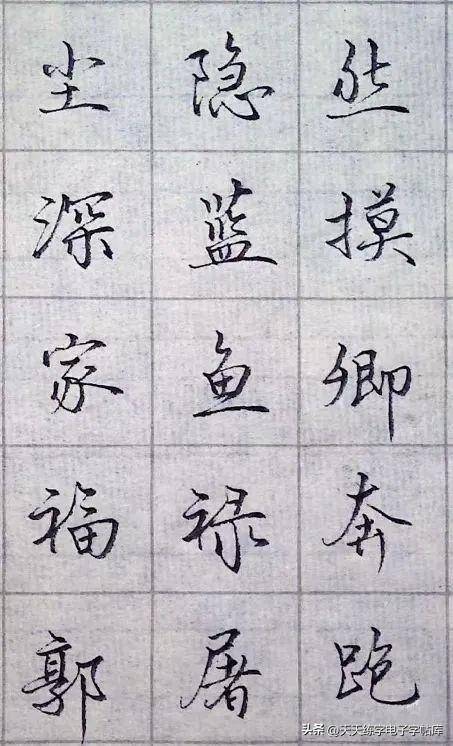 尘隐然
深蓝摸
家鱼卿
福禄奔
郭屠跑
头条 @天天练字电子字帖库